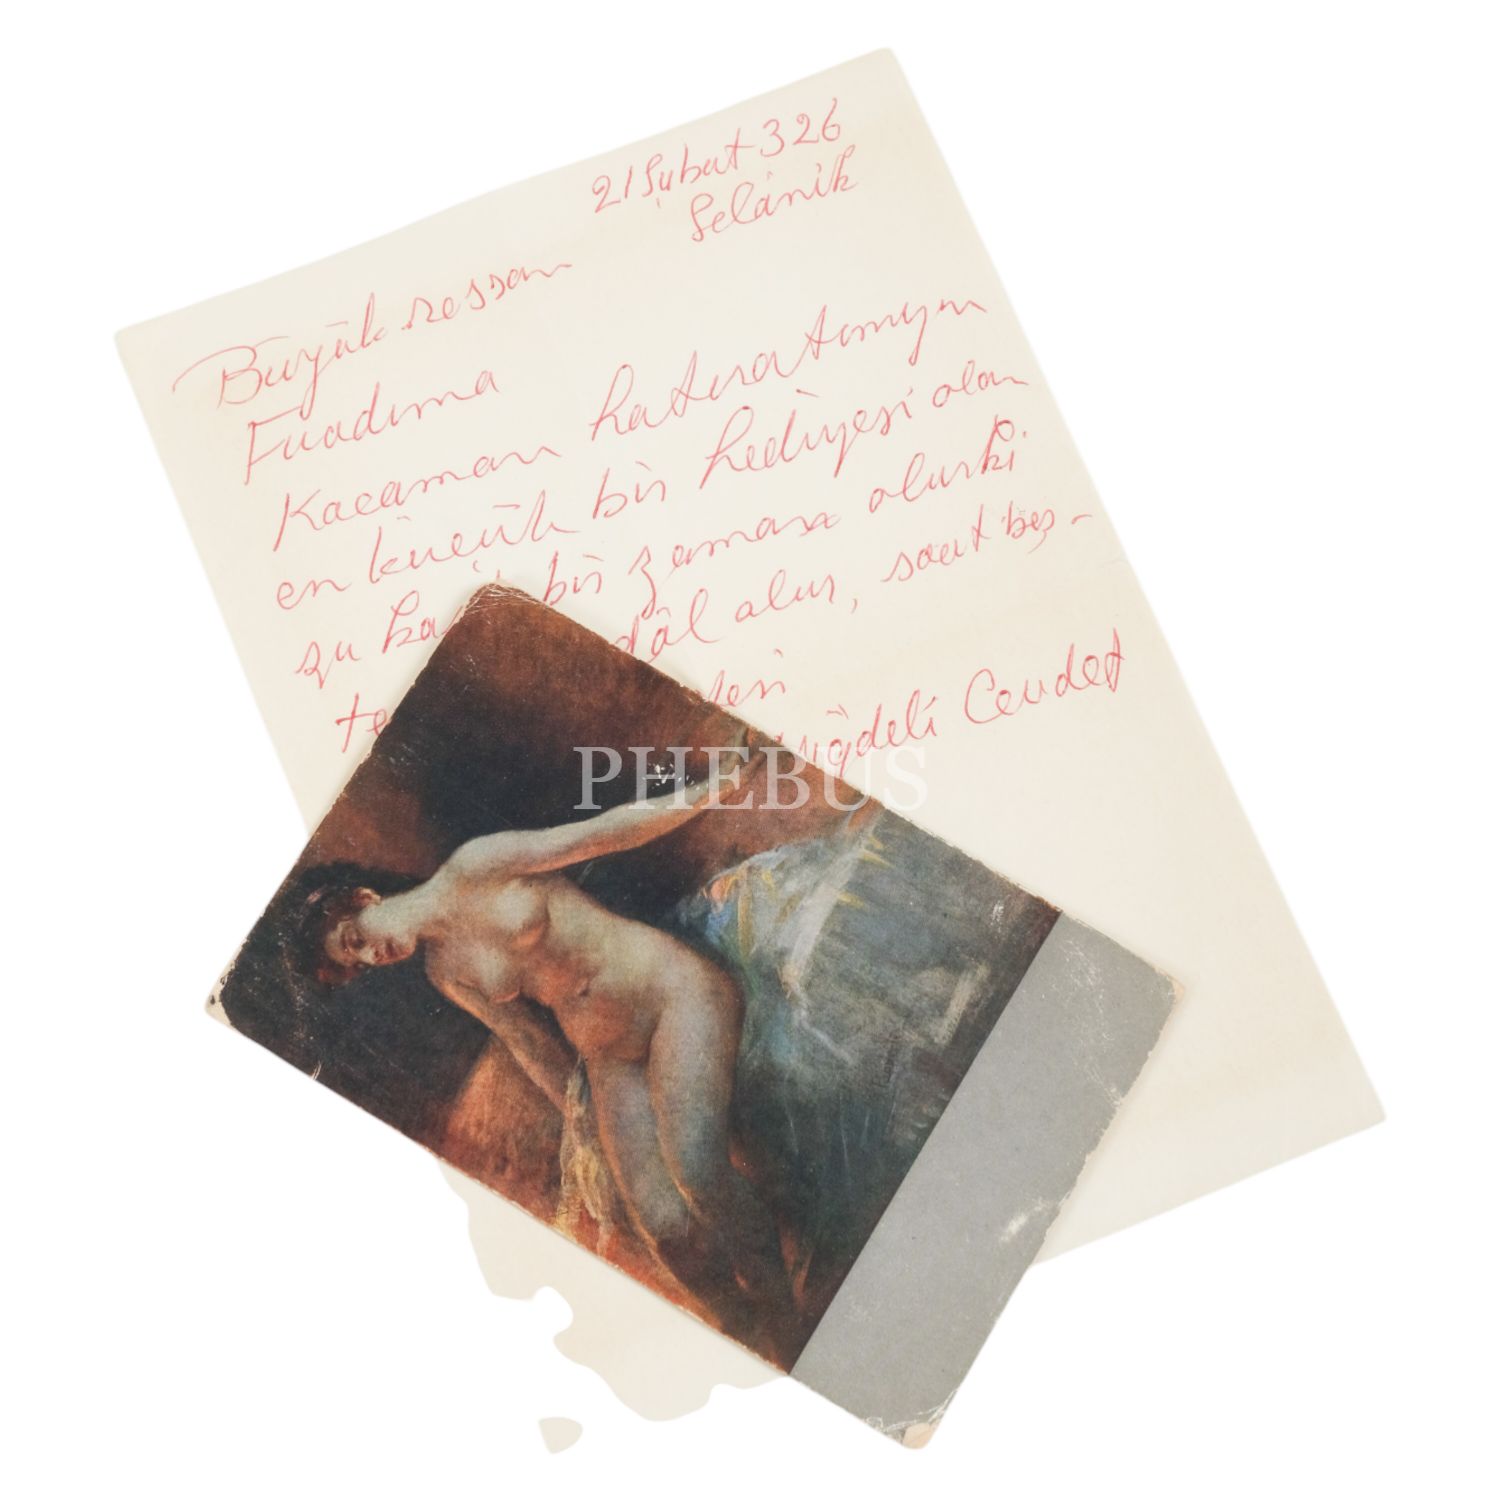 21 Şubat 326
Selânik
Büyük ressam
Fuadıma
Kacaman hatıratımın
en küçük bir hediyesi olan
şu ka bir zaman olurki
te dâl olur, saat beş-
deli Cevdet
PHEBUS